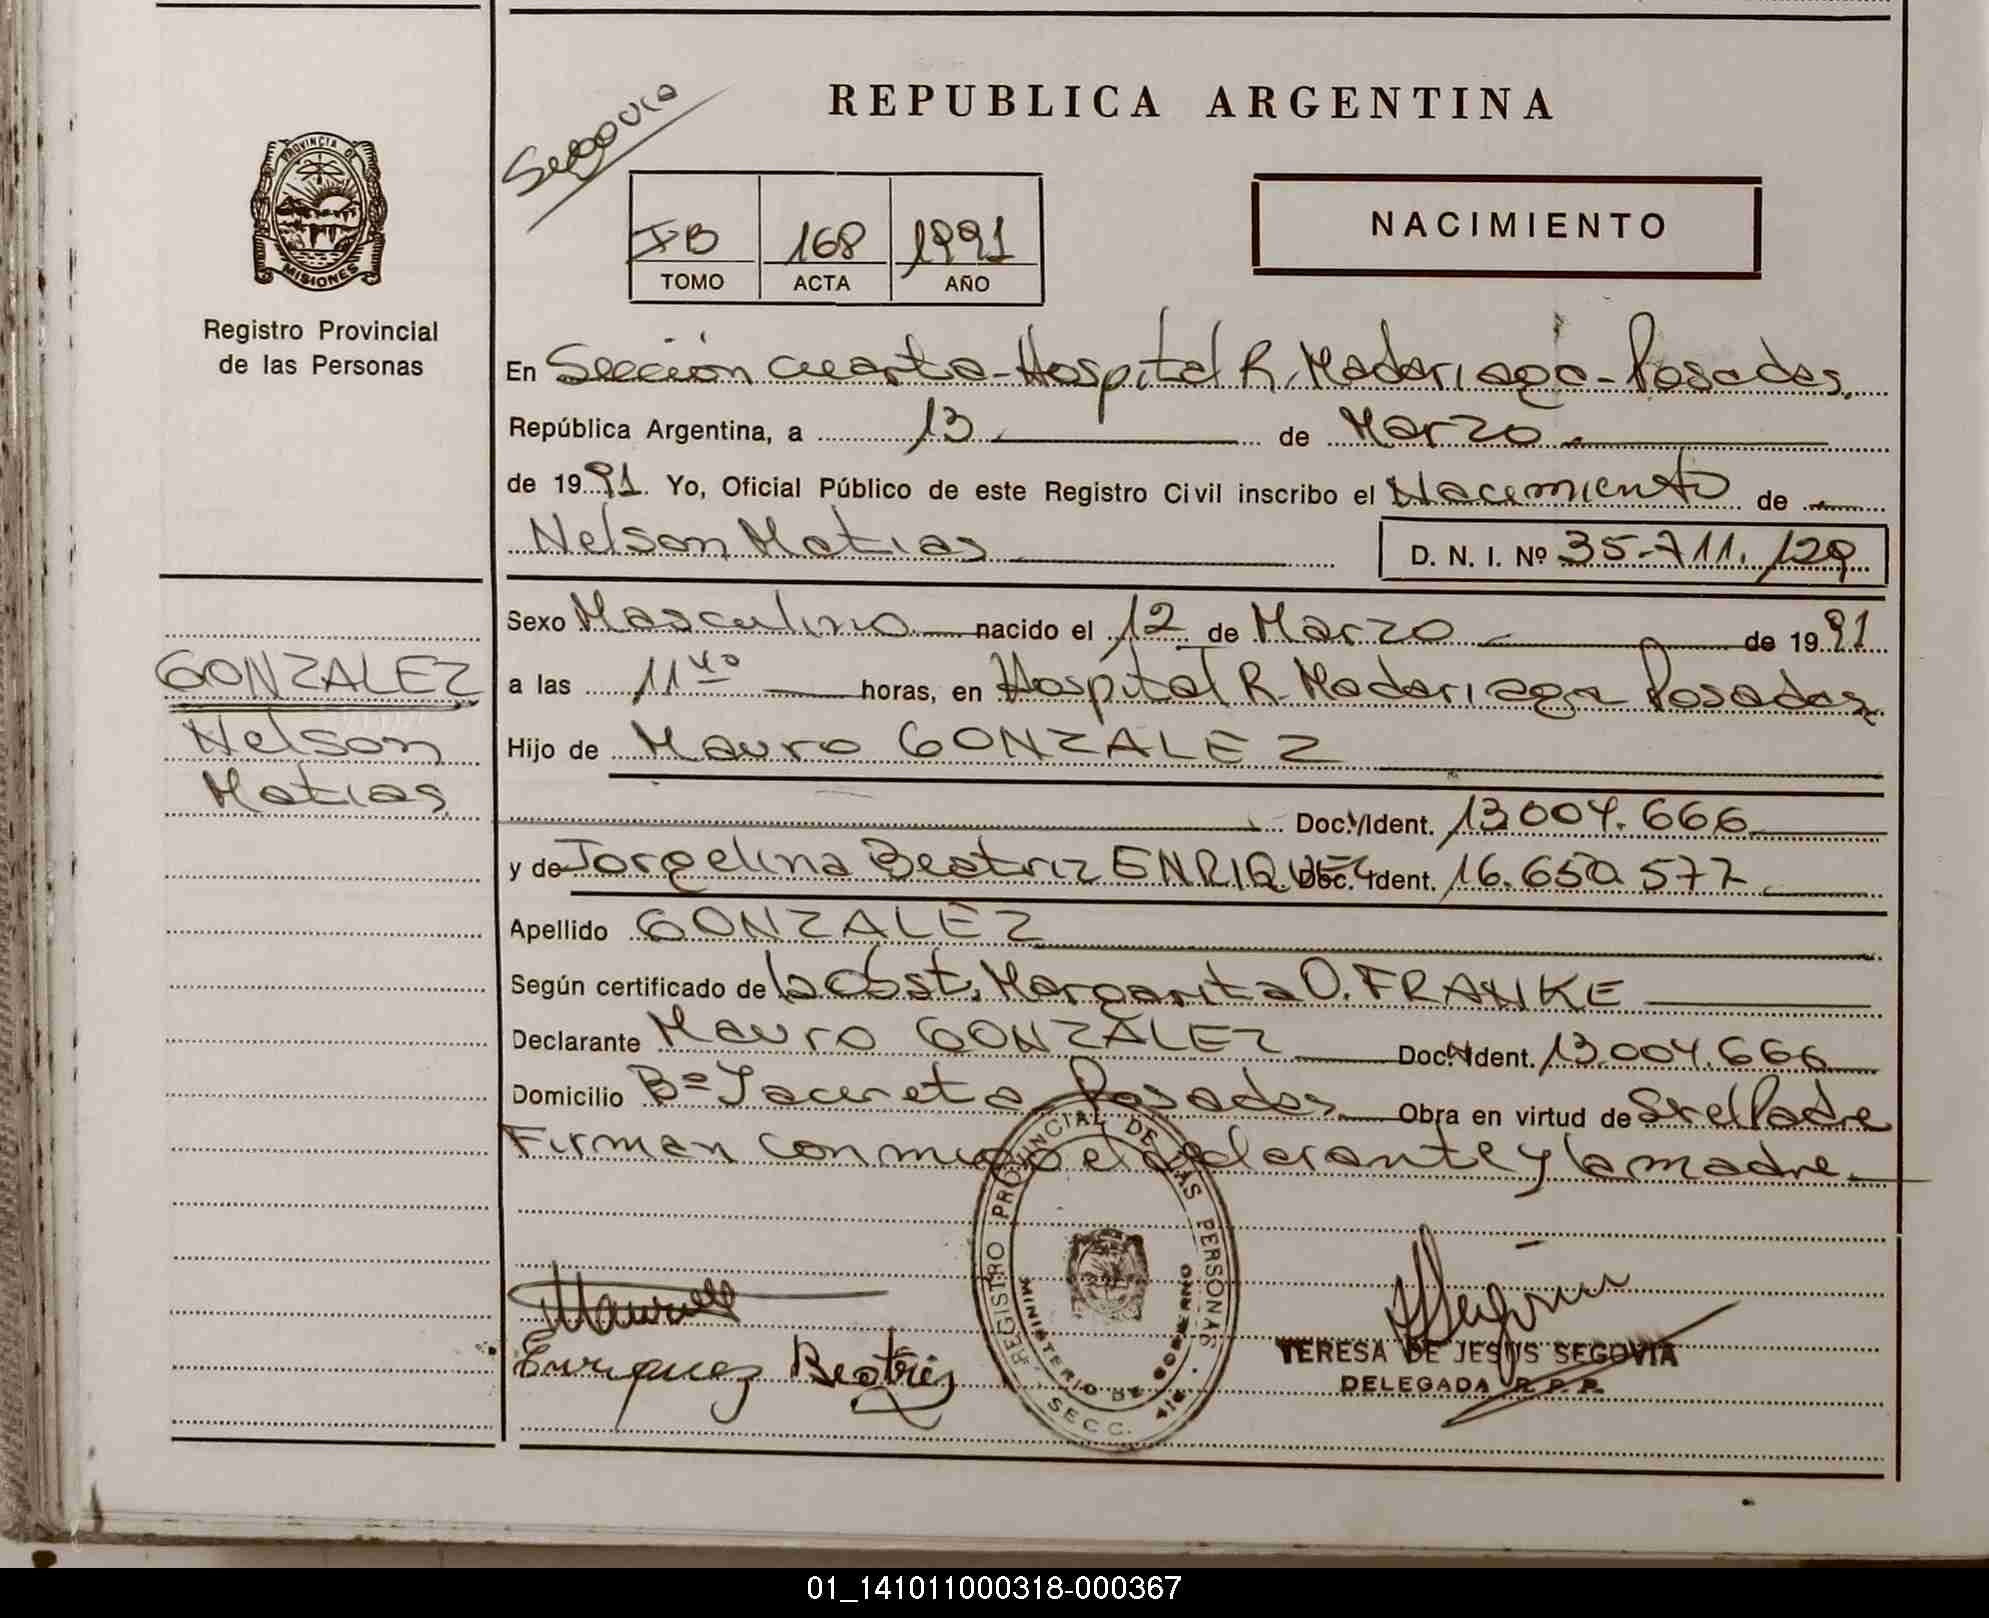 REPUBLICA ARGENTINA
Segovia
PROVINCIA DE
MISIONES
Registro Provincial
de las Personas
IB 168 1991
TOMO ACTA AÑO
NACIMIENTO
En Sección cuarta-Hospital R. Madariaga-Posadas.
República Argentina, a 13 de Marzo
de 1991. Yo, Oficial Público de este Registro Civil inscribo el Nacimiento de
Nelson Matias
D. N. I. Nº 35-711.129
Sexo Masculino nacido el 12 de Marzo de 1991
a las 11 horas, en Hospital R. Madariaga Posadas
Hijo de Mauro GONZALEZ
Doc. Ident. 13.004.666
y de Jorgelina Beatriz ENRIQUEZ Doc. Ident. 16.650.577
Apellido GONZALEZ
Según certificado de la Obst. Margarita O. FRANKE
Declarante Mauro GONZALEZ Doc. Ident. 13.004.666
Domicilio Bº Yacereta Posadas Obra en virtud de Ser el Padre
Firman conmigo el declarante y la madre
GONZALEZ
Nelson
Matias
REGISTRO PROVINCIAL DE LAS PERSONAS
MINISTERIO DE GOBIERNO
SECC. 4ta.
Enriquez Beatriz
TERESA DE JESUS SEGOVIA
DELEGADA R.P.P.
01_141011000318-000367